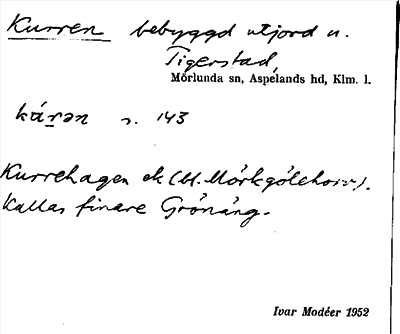 Kurren bebyggd utjord u.
Tigerstad,
Mörlunda sn, Aspelands hd, Klm. l.
kárən s. 143
Kurrehagen ek (bl. Mörkgölehorv).
Kallas finare Grönäng.
Ivar Modéer 1952